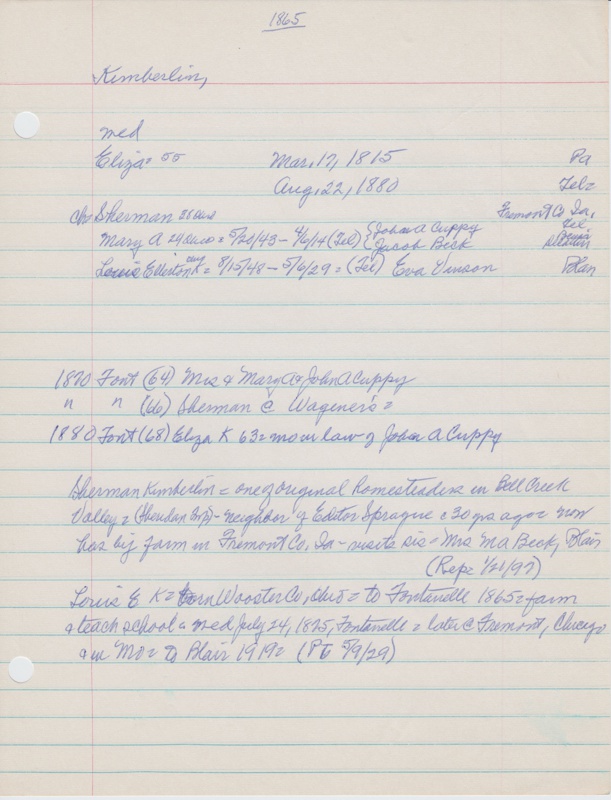 1865
Kimberlin,
med
Eliza = 55 Mar, 17, 1815 Pa
Aug, 22, 1880 Tel=
chs Sherman 26 Fremont Co Ia,
Mary A 24 = 5/20/43 - 4/6/14 (Tel) {John A Cuppy Tel
{Jacob Beck
Louis Ediston K = 8/15/48 - 5/6/29 = (Tel) Eva Vinson Blair
1870 Font (64) Mrs & Mary A & John A Cuppy
" " (66) Sherman c Wagener's =
1880 Font (68) Eliza K 63 = mo in law of John A Cuppy
Sherman Kimberlin = one of original homesteaders in Bell Creek
Valley = (Sheridan Twp) - neighbor of Editor Sprague c 30 yrs ago = now
has big farm in Fremont Co, Ia - visits sis - Mrs MA Beck, Blair
(Rep = 1/21/97)
Louis E K = born Wooster Co, Ohio = to Fontanelle 1865 = farm
& teach school = med July 24, 1875, Fontanelle = later @ Fremont, Chicago
& in Mo = to Blair 1919 = (PT 5/9/29)